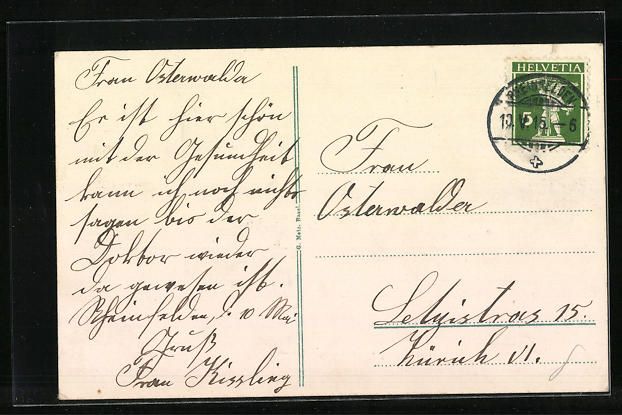 Frau Osterwalda
Es ist hier schön
mit der Gesundheit
kann ich noch nichts
sagen bis der
Doktor wieder
da gewesen ist.
Rheinfelden, d. 10 Mai
Gruß
Frau Kissling
G. Metz, Basel.
HELVETIA
5
RHEINFELDEN
10.V.15.–6
Frau
Osterwalder
15.
Zürich VI.